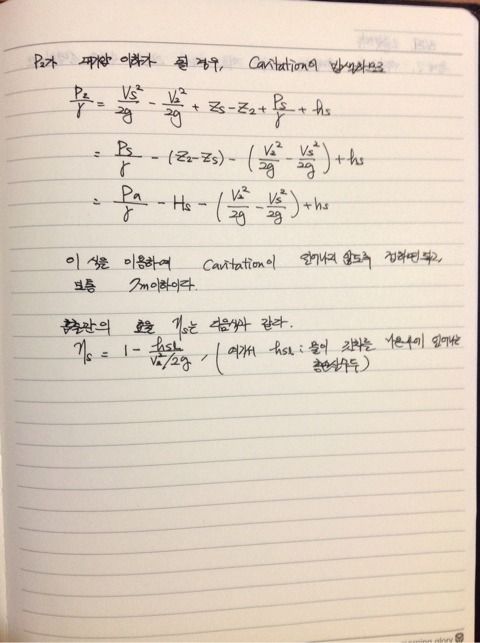 P₂가 증기압 이하가 될 경우, Cavitation이 발생하므로
P₂/γ = Vs²/2g - V₂²/2g + Zs - Z₂ + Ps/γ + hs
= Ps/γ - (Z₂-Zs) - (V₂²/2g - Vs²/2g) + hs
= Pa/γ - Hs - (V₂²/2g - Vs²/2g) + hs
이 식을 이용하여 Cavitation이 일어나지 않도록 정하면 되고,
보통 7m이하이다.
흡출관의 효율 ηs는 다음식과 같다.
ηs = 1 - hsl / V₂²/2g , ( 여기서 hsl : 물이 나온후에 일어나는
손실수두)